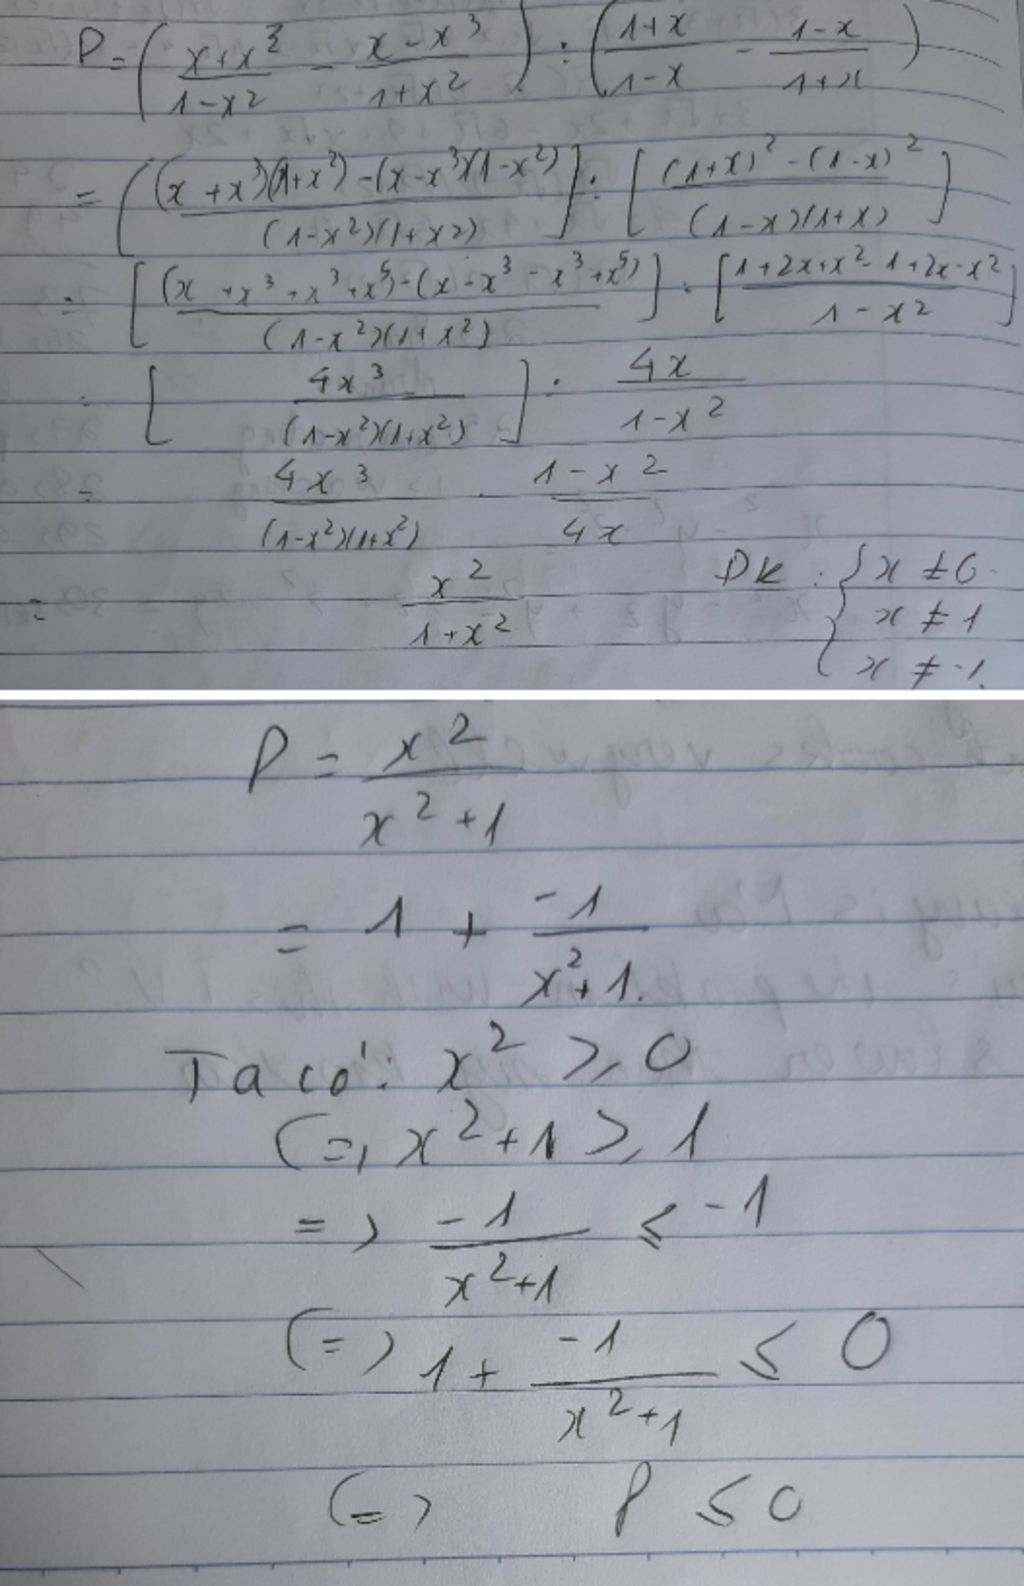 P = ( (x+x³)/(1-x²) - (x-x³)/(1+x²) ) : ( (1+x)/(1-x) - (1-x)/(1+x) )
= [ ((x+x³)(1+x²)-(x-x³)(1-x²))/((1-x²)(1+x²)) ] : [ ((1+x)²-(1-x)²)/((1-x)(1+x)) ]
= [ ((x+x³+x³+x⁵)-(x-x³-x³+x⁵))/((1-x²)(1+x²)) ] : [ (1+2x+x²-1+2x-x²)/(1-x²) ]
= [ 4x³/((1-x²)(1+x²)) ] : 4x/(1-x²)
= 4x³/((1-x²)(1+x²)) . (1-x²)/4x
= x²/(1+x²) ĐK : { x ≠ 0
x ≠ 1
x ≠ -1.
P = x²/(x²+1)
= 1 + -1/(x²+1).
Ta có: x² ≥ 0
(=) x²+1 ≥ 1
=> -1/(x²+1) ≤ -1
(=) 1 + -1/(x²+1) ≤ 0
(=) P ≤ 0